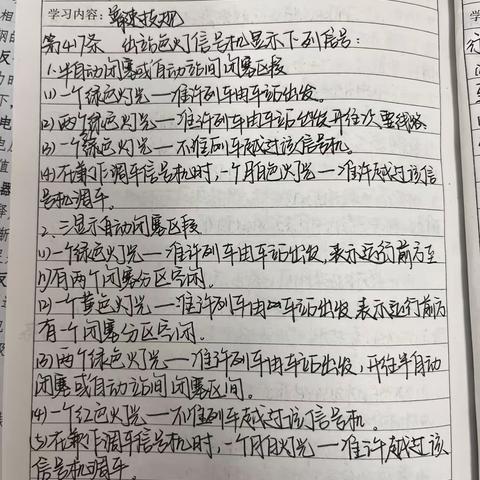 学习内容：普速技规
第417条 出站色灯信号机显示下列信号：
1.半自动闭塞或自动站间闭塞区段
(1)一个绿色灯光—准许列车由车站出发。
(2)两个绿色灯光—准许列车由车站出发开往次要线路
(3)一个红色灯光—不准列车越过该信号机。
(4)在兼作调车信号机时，一个月白色灯光—准许越过该信
号机调车。
2、三显示自动闭塞区段
(1)一个绿色灯光—准许列车由车站出发，表示运行前方至
少有两个闭塞分区空闲。
(2)一个黄色灯光—准许列车由车站出发 表示运行前方
有一个闭塞分区空闲。
(3)两个绿色灯光—准许列车由车站出发，开往半自动
闭塞或自动站间闭塞区间。
(4)一个红色灯光—不准列车越过该信号机。
(5)在兼作调车信号机时，一个月白灯光—准许越过该
信号机调车。